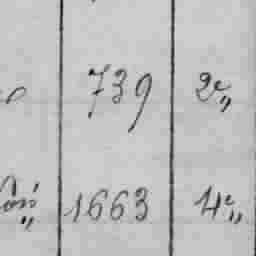 739 2e„
1663 4e„